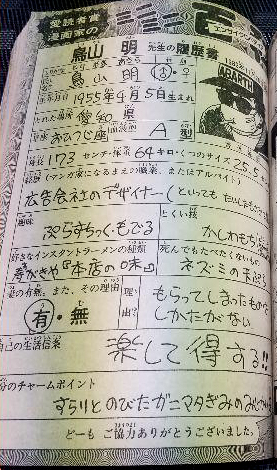 愛読者賞
漫画家の
鳥山 明 先生の履歴書
鳥山 明
1955年4月5日生まれ
生まれた場所 愛知県
おひつじ座 血液型 A型
身長173センチ・体重64キロ・くつのサイズ25.5
(マンガ家になるまえの職業、またはアルバイト)
広告会社のデザイナー(といっても
趣味
ぷらすちっく・もでる
とくい技
かしわもち
好きなインスタントラーメンの種類
寿がきや『本店の味』
死んでもたべたくないもの
ネズミの
妻の有無。また、その理由
有・無
理由?
もらってしまったもの
しかたがない
自己の生活信条
楽して得する!!
自分のチャームポイント
すらりとのびたガニマタぎみの
どーも ご協力ありがとうございました。
ABARTH